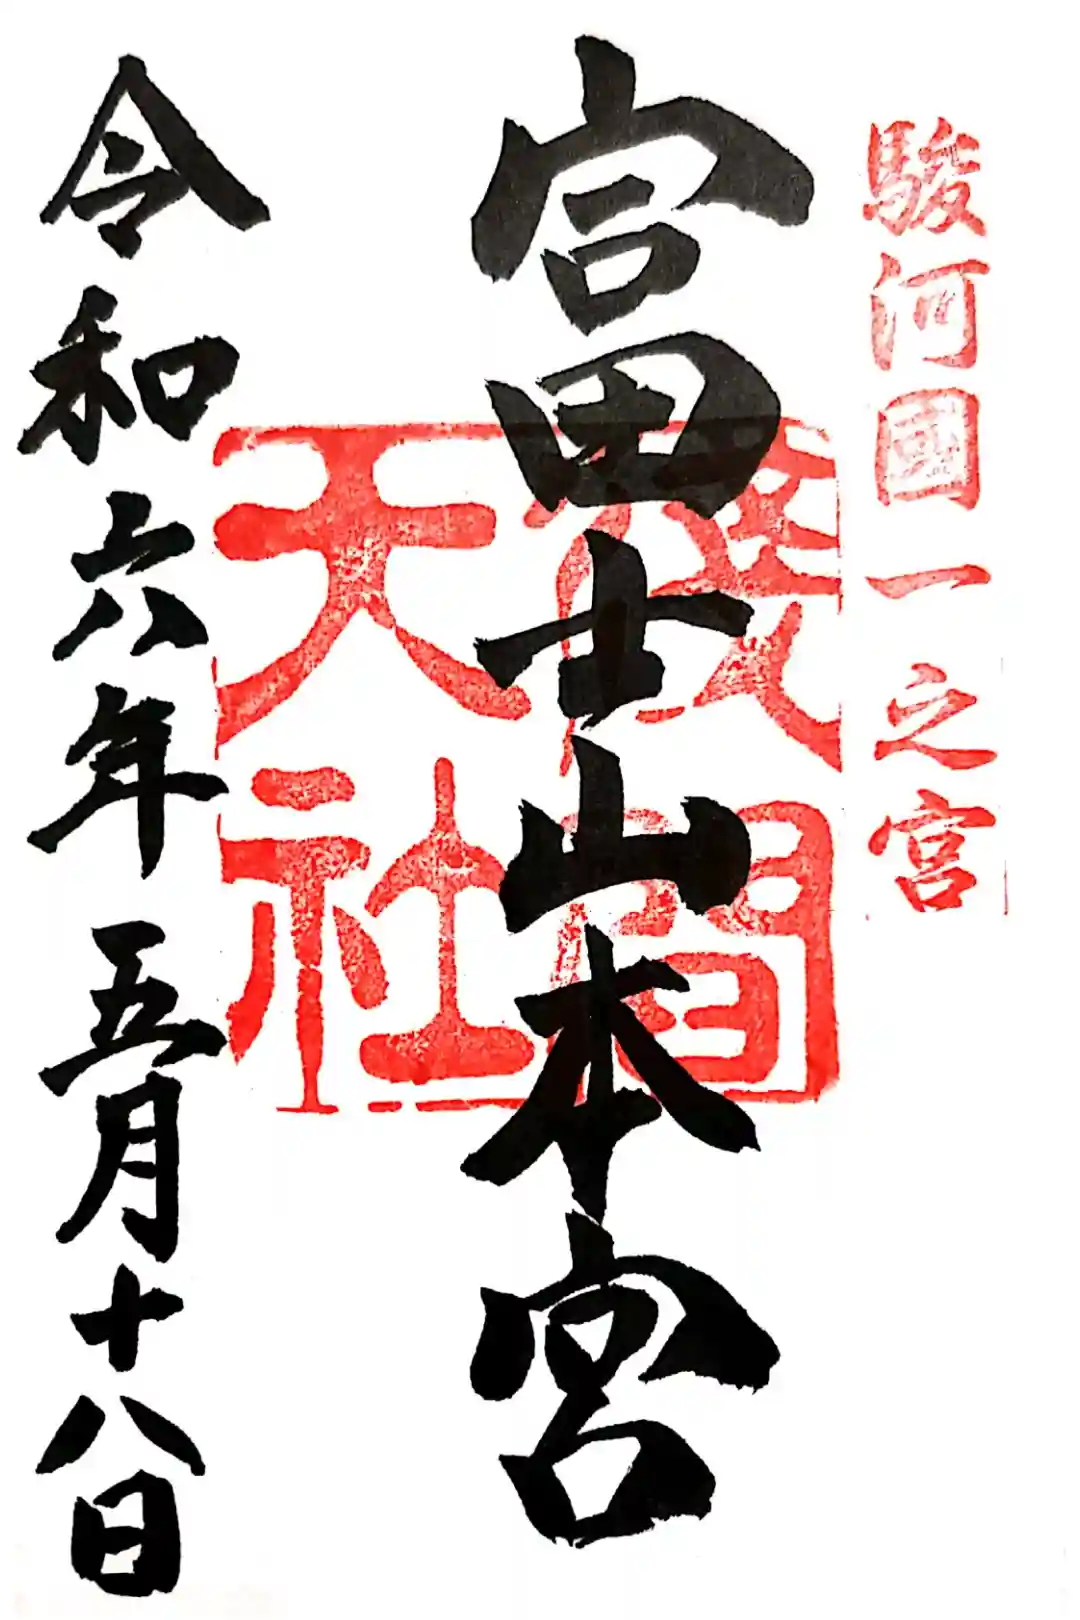 駿河國一之宮
富士山本宮
淺間
天社
令和六年五月十八日